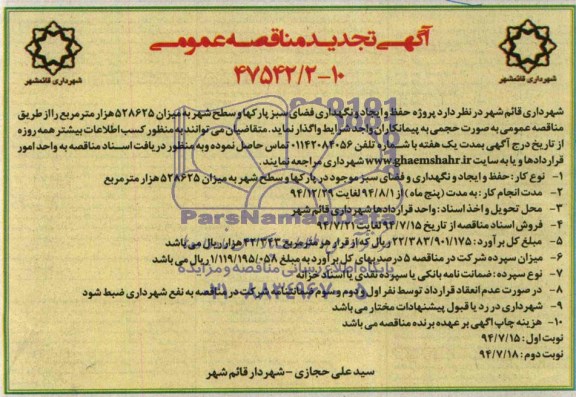 آگهی تجدید مناقصه عمومی
۱۰-۴۷۵۴۲/۲
شهرداری قائمشهر
شهرداری قائمشهر
شهرداری قائم شهر در نظر دارد پروژه حفظ و ایجاد و نگهداری فضای سبز پارکها و سطح شهر به میزان ۵۲۸۶۲۵ هزار متر مربع را از طریق
مناقصه عمومی به صورت حجمی به پیمانکاران واجد شرایط واگذار نماید. متقاضیان می توانند به منظور کسب اطلاعات بیشتر همه روزه
از تاریخ درج آگهی بمدت یک هفته با شماره تلفن ۰۱۱۴۲۰۸۴۰۵۶ تماس حاصل نموده و به منظور دریافت اسناد مناقصه به واحد امور
قراردادها و یا به سایت www.ghaemshahr.ir شهرداری مراجعه نمایند.
۱- نوع کار: حفظ و ایجاد و نگهداری و فضای سبز موجود در پارکها و سطح شهر به میزان ۵۲۸۶۲۵ هزار متر مربع
۲- مدت انجام کار: به مدت (پنج ماه) از ۹۴/۸/۱ لغایت ۹۴/۱۲/۲۹
۳- محل تحویل و اخذ اسناد: واحد قراردادها شهرداری قائم شهر
۴- فروش اسناد مناقصه از تاریخ ۹۴/۷/۱۵ لغایت ۹۴/۷/۲۱
۵- مبلغ کل برآورد: ۲۲/۳۸۳/۹۰۱/۱۷۵ ریال که از قرار هر متر مربع ۴۲/۳۴۳ هزار ریال می باشد
۶- میزان سپرده شرکت در مناقصه ۵ درصد بهای کل برآورد به مبلغ ۱/۱۱۹/۱۹۵/۰۵۸ ریال می باشد
۷- نوع سپرده: ضمانت نامه بانکی یا سپرده نقدی یا اسناد خزانه
۸- در صورت عدم انعقاد قرارداد توسط نفر اول و دوم و سوم ضمانتنامه شرکت در مناقصه به نفع شهرداری ضبط شود
۹- شهرداری در رد یا قبول پیشنهادات مختار می باشد
۱۰- هزینه چاپ آگهی بر عهده برنده مناقصه می باشد
نوبت اول: ۹۴/۷/۱۵
نوبت دوم: ۹۴/۷/۱۸
سید علی حجازی - شهردار قائم شهر
ParsNamadData
پایگاه اطلاع رسانی مناقصه و مزایده
۰۲۱-۸۸۳۴۹۶۷۰-۵